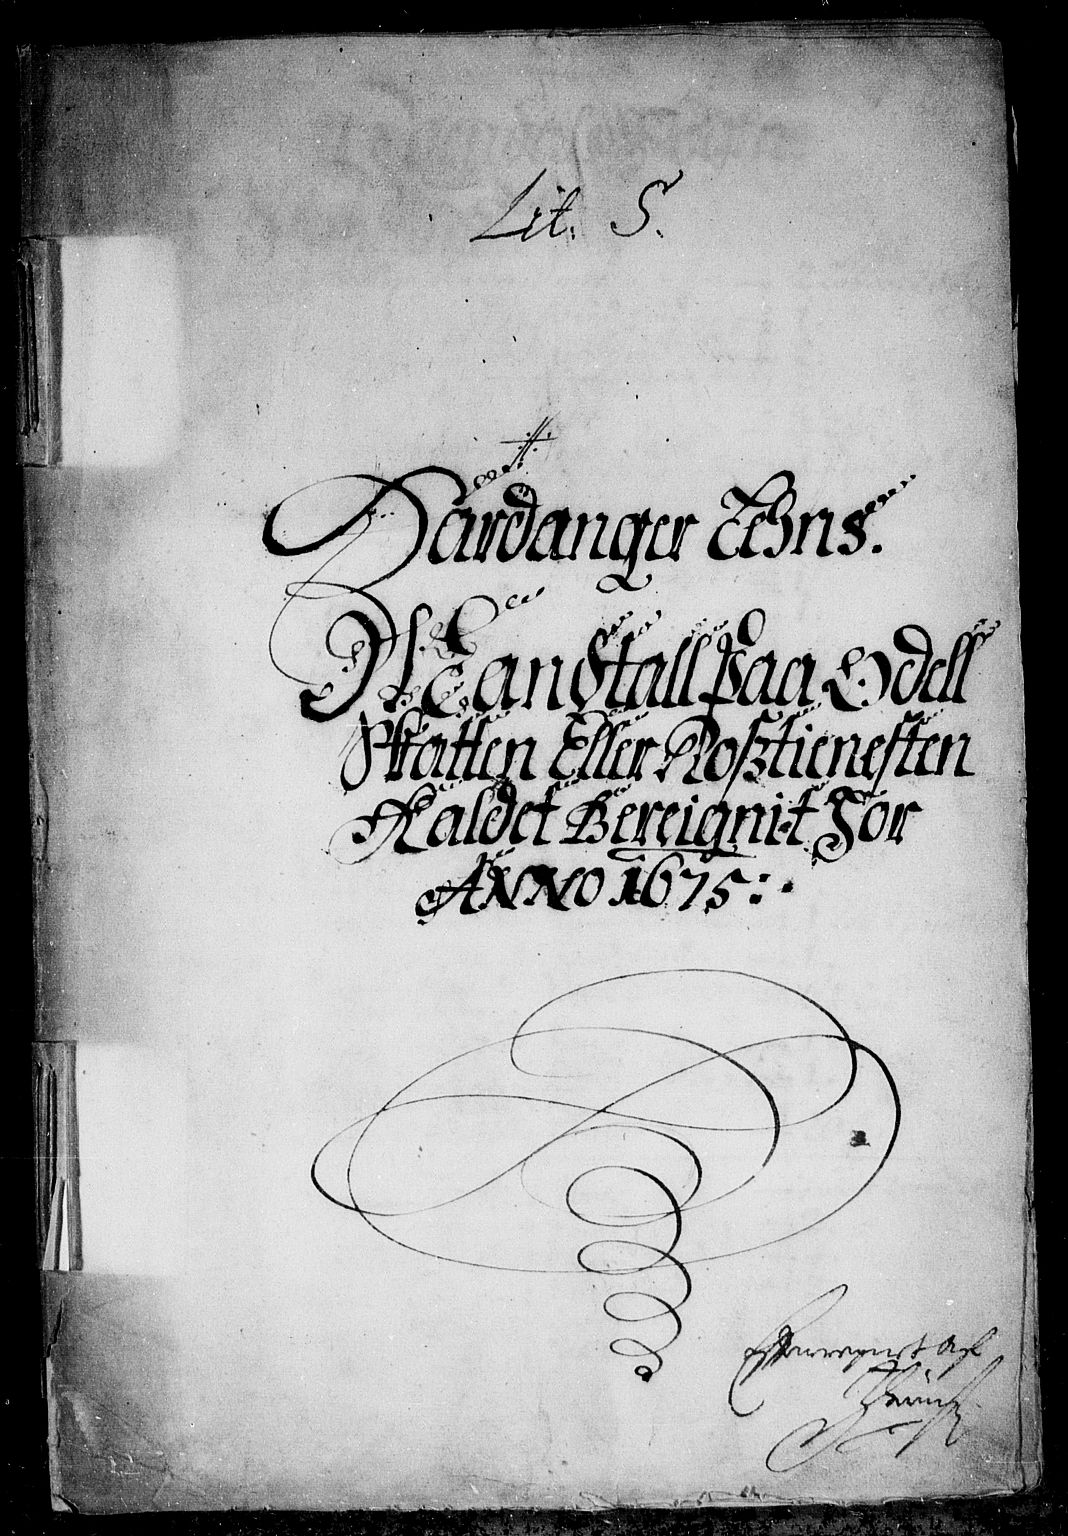 Lit. S.
Hardanger Lehns.
Mandtall paa Odell
Skatten Eller Rosztienesten
Kaldet Bereignit For
Anno 1675:.
Effterregnet Aff